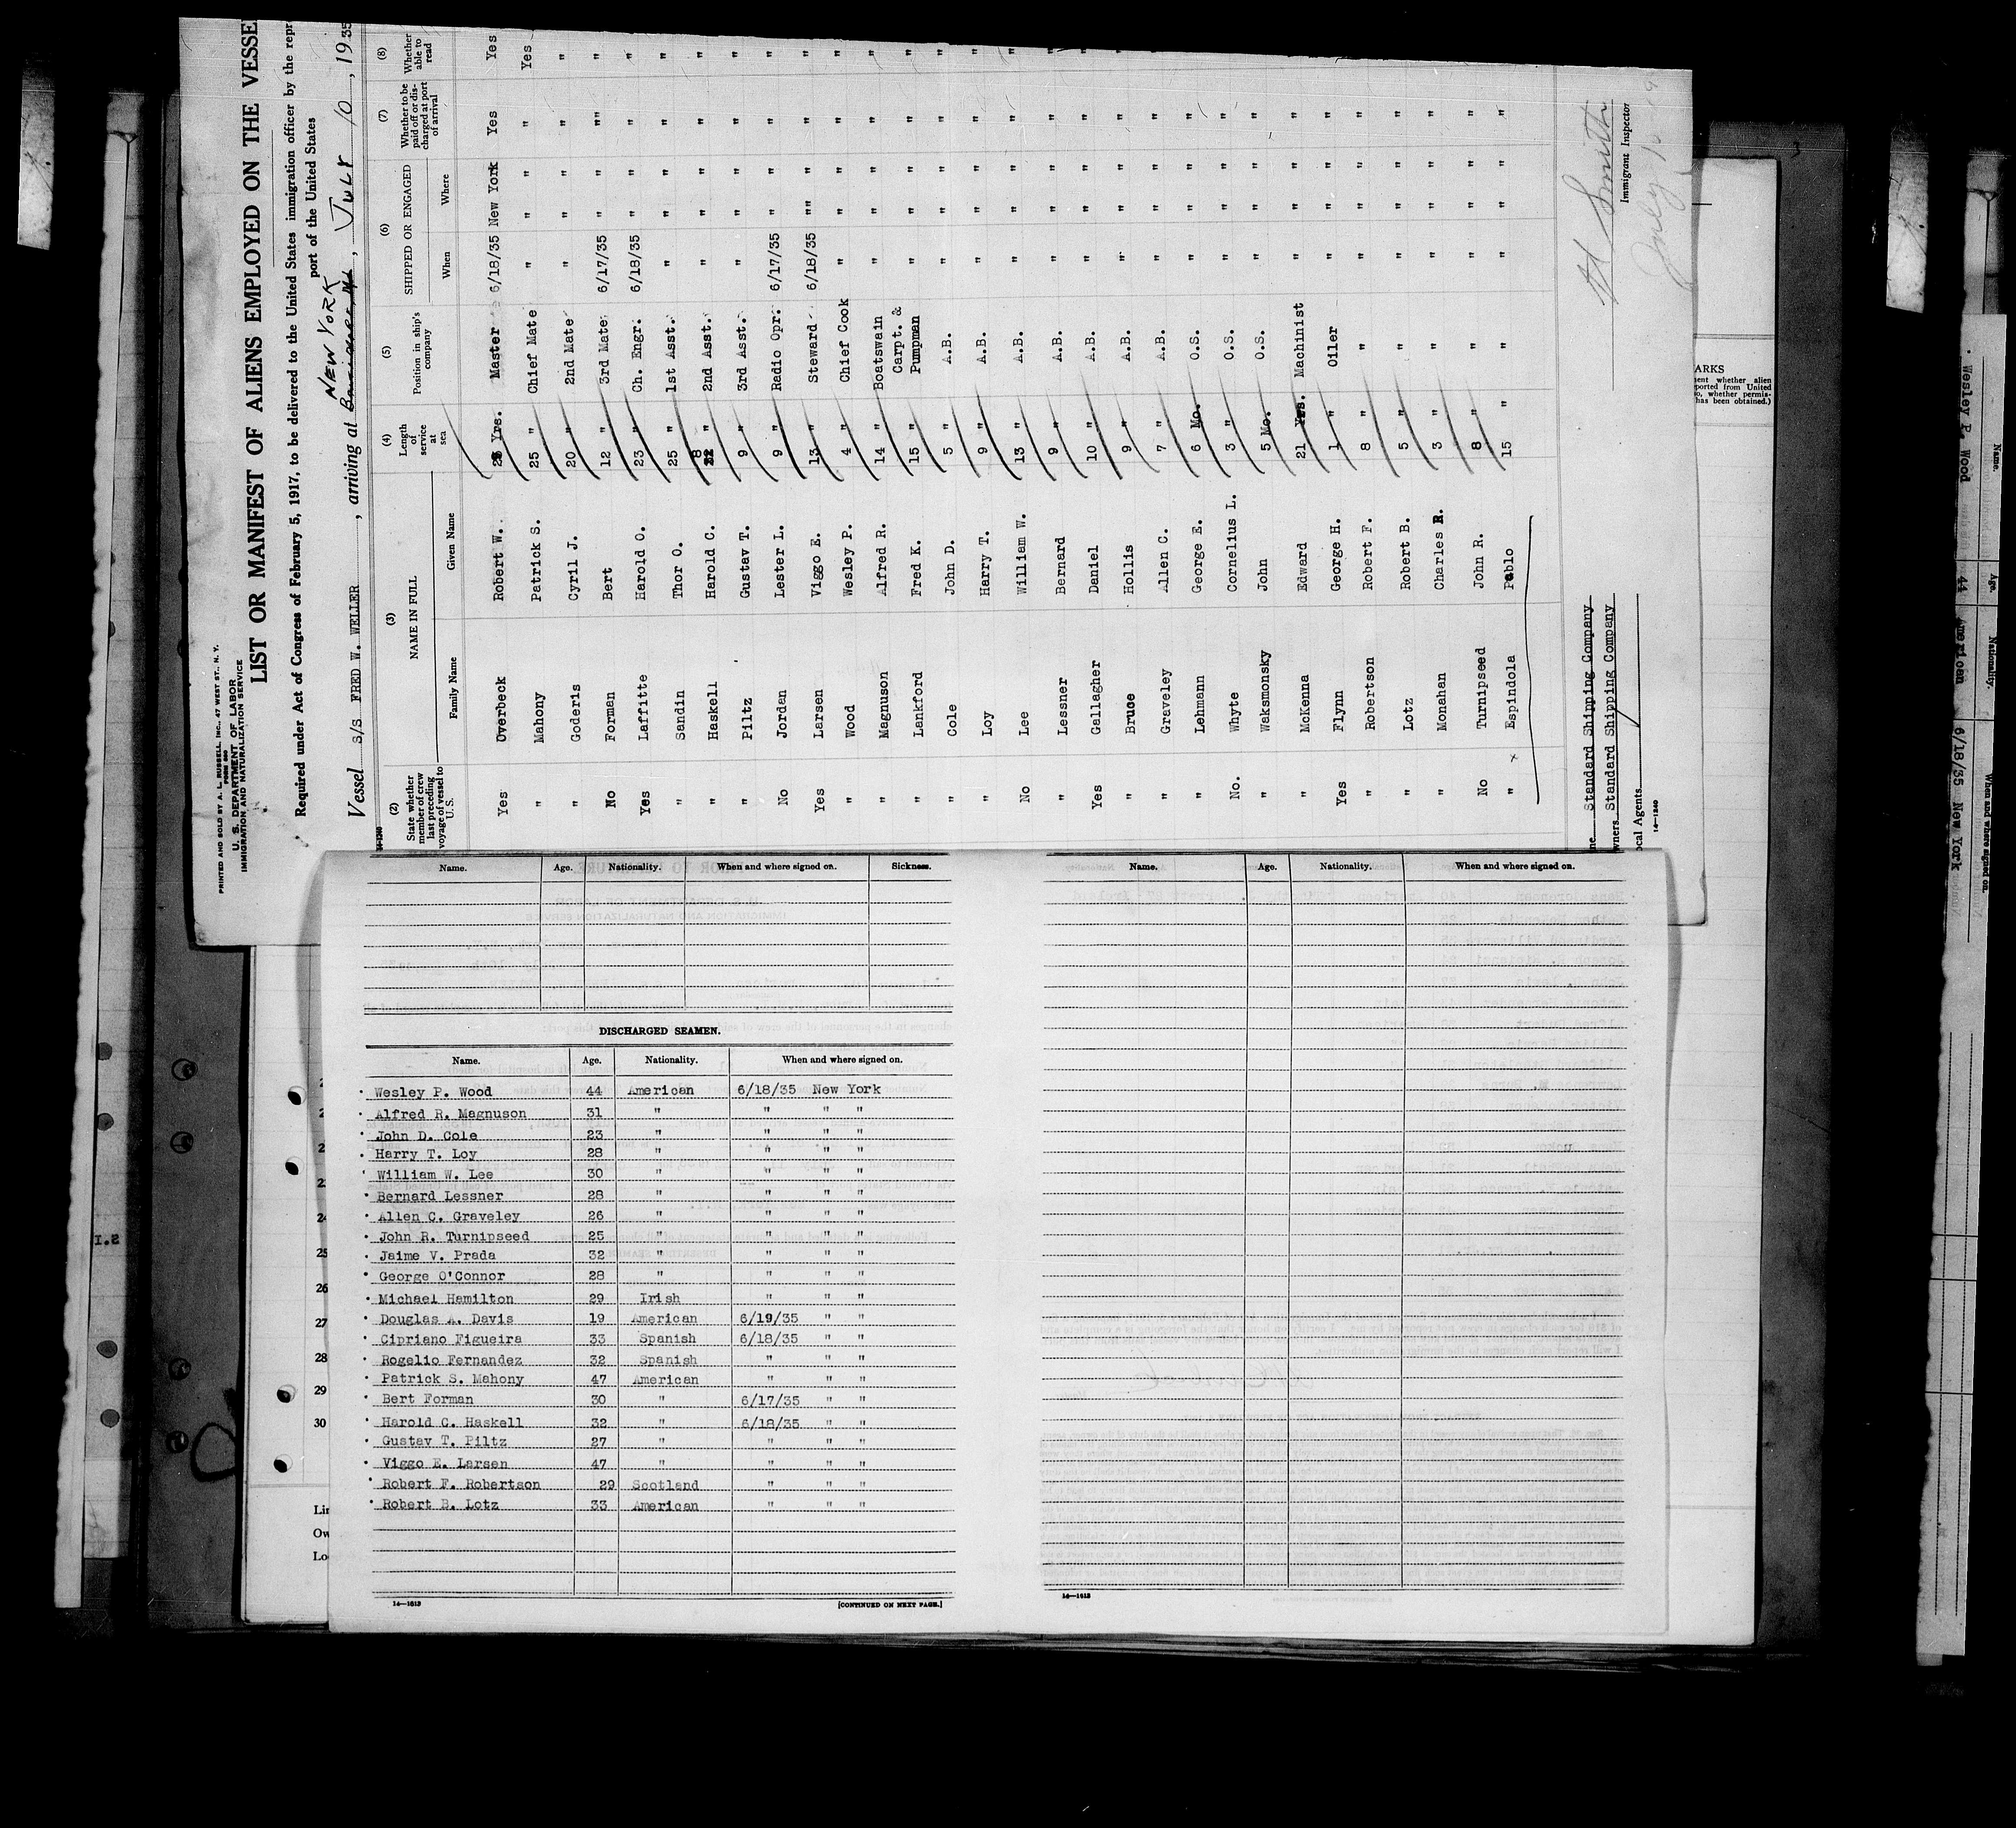 PRINTED AND SOLD BY A. L. RUSSELL, INC., 47 WEST ST., N. Y.
U. S. DEPARTMENT OF LABOR
IMMIGRATION AND NATURALIZATION SERVICE
LIST OR MANIFEST OF ALIENS EMPLOYED ON THE VESSEL
Required under Act of Congress of February 5, 1917, to be delivered to the United States immigration officer by the repr
port of the United States
NEW YORK
Vessel S/S FRED W. WELLER, arriving at , JULY 10, 1935
(2) (3) (4) (5) (6) (7) (8)
State whether member of crew last preceding voyage of vessel to U. S. NAME IN FULL Length of service at sea Position in ship's company SHIPPED OR ENGAGED Whether to be paid off or discharged at port of arrival Whether able to read
Family Name Given Name When Where
Yes Overbeck Robert W. Yrs. Master 6/18/35 New York Yes Yes
" Mahony Patrick S. 25 " Chief Mate " " " " Yes
" Goderis Cyril J. 20 " 2nd Mate " " " " "
No Forman Bert 12 " 3rd Mate 6/17/35 " " "" "
Yes Laffitte Harold O. 23 " Ch. Engr. 6/18/35 " " " "
" Sandin Thor O. 25 " 1st Asst. " " " " "
" Haskell Harold C. 8 " 2nd Asst. " " " " "
" Piltz Gustav T. 9 " 3rd Asst. " " " " "
No Jordan Lester L. 9 " Radio Opr. 6/17/35 " " " "
Yes Larsen Viggo E. 13 " Steward 6/18/35 "" " " "
" Wood Wesley P. 4 " Chief Cook " " " " "
" Magnuson Alfred R. 14 " Boatswain " " " " "
" Lankford Fred K. 15 " Carpt. & Pumpman " " " " "
" Cole John D. 5 " A.B. " " " " "
" Loy Harry T. 9 " A.B. " " " " "
No Lee William W. 13 " A.B. " " " " "
" Lessner Bernard 9 " A.B. " " " " "
Yes Gallagher Daniel 10 " A.B. " " " " "
" Bruce Hollis 9 " A.B. " " " " "
" Graveley Allen C. 7 " A.B. " " " " "
" Lehmann George E. 6 Mo. O.S. " " " " "
No. Whyte Cornelius L. 3 " O.S. " " " " "
" Waksmonsky John 5 Mo. O.S. " " " " "
" McKenna Edward 21 Yrs. Machinist " " " " "
Yes Flynn George H. 1 " Oiler " " " " "
" Robertson Robert F. 8 " " " " " " "
" Lotz Robert B. 5 " " " " " " "
" Monahan Charles R. 3 " " " " " " "
No Turnipseed John R. 8 " " " " " " "
" x Espindola Pablo 15 " " " " " " "
Standard Shipping Company
Standard Shipping Company
ocal Agents
14—1240
Smith
Immigrant Inspector
July 10
ARKS
Name. Age. Nationality. When and where signed on. Sickness.
DISCHARGED SEAMEN.
Name. Age. Nationality. When and where signed on.
Wesley P. Wood 44 American 6/18/35 New York
Alfred R. Magnuson 31 " " " "
John D. Cole 23 " " " "
Harry T. Loy 28 " " " "
William W. Lee 30 " " " "
Bernard Lessner 28 " " " "
Allen C. Graveley 26 " " " "
John R. Turnipseed 25 " " " "
Jaime V. Prada 32 " " " "
George O'Connor 28 " " " "
Michael Hamilton 29 Irish " " "
Douglas A. Davis 19 American 6/19/35 " "
Cipriano Figueira 33 Spanish 6/18/35 " "
Rogelio Fernandez 32 Spanish " " "
Patrick S. Mahony 47 American " " "
Bert Forman 30 " 6/17/35 " "
Harold C. Haskell 32 " 6/18/35 " "
Gustav T. Piltz 27 " " " "
Viggo E. Larsen 47 " " " "
Robert F. Robertson 29 Scotland " " "
Robert B. Lotz 33 American " " "
14—1613
[CONTINUED ON NEXT PAGE.]
Name. Age. Nationality. When and where signed on.
14—1613
24
25
26
27
28
29
30
Name. Age. Nationality. When and where signed on.
Wesley P. Wood 44 American 6/18/35 New York